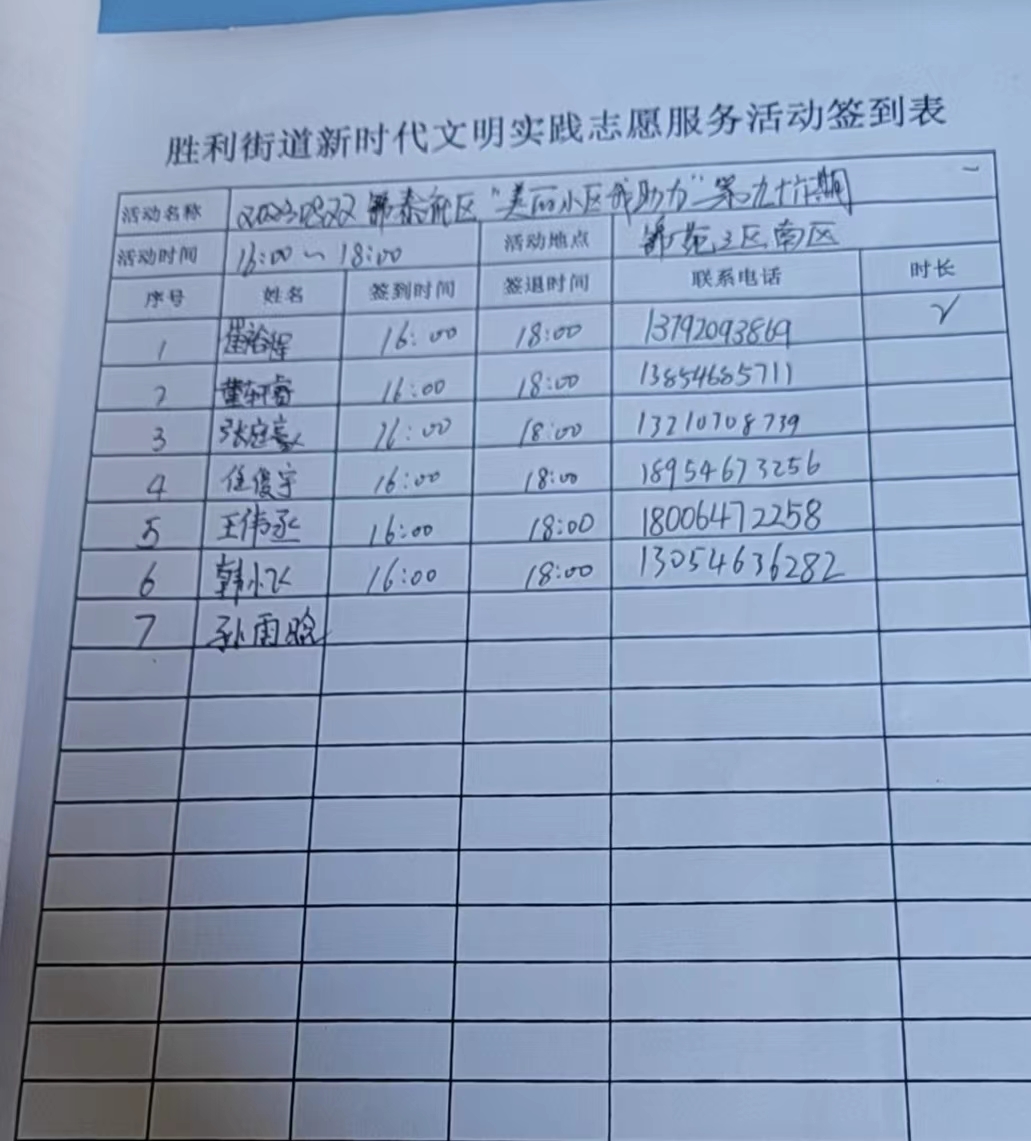 胜利街道新时代文明实践志愿服务活动签到表
活动名称 20230822 锦苑社区"美丽小区我助力"第九十六期
活动时间 16:00~18:00 活动地点 锦苑三区南区
序号 姓名 签到时间 签退时间 联系电话 时长
1 16:00 18:00 13792093869 √
2 董轩睿 16:00 18:00 13854685711
3 张庭豪 16:00 18:00 13210708739
4 任俊宇 16:00 18:00 18954673256
5 王伟丞 16:00 18:00 18006472258
6 韩小飞 16:00 18:00 13054636282
7 孙雨晗